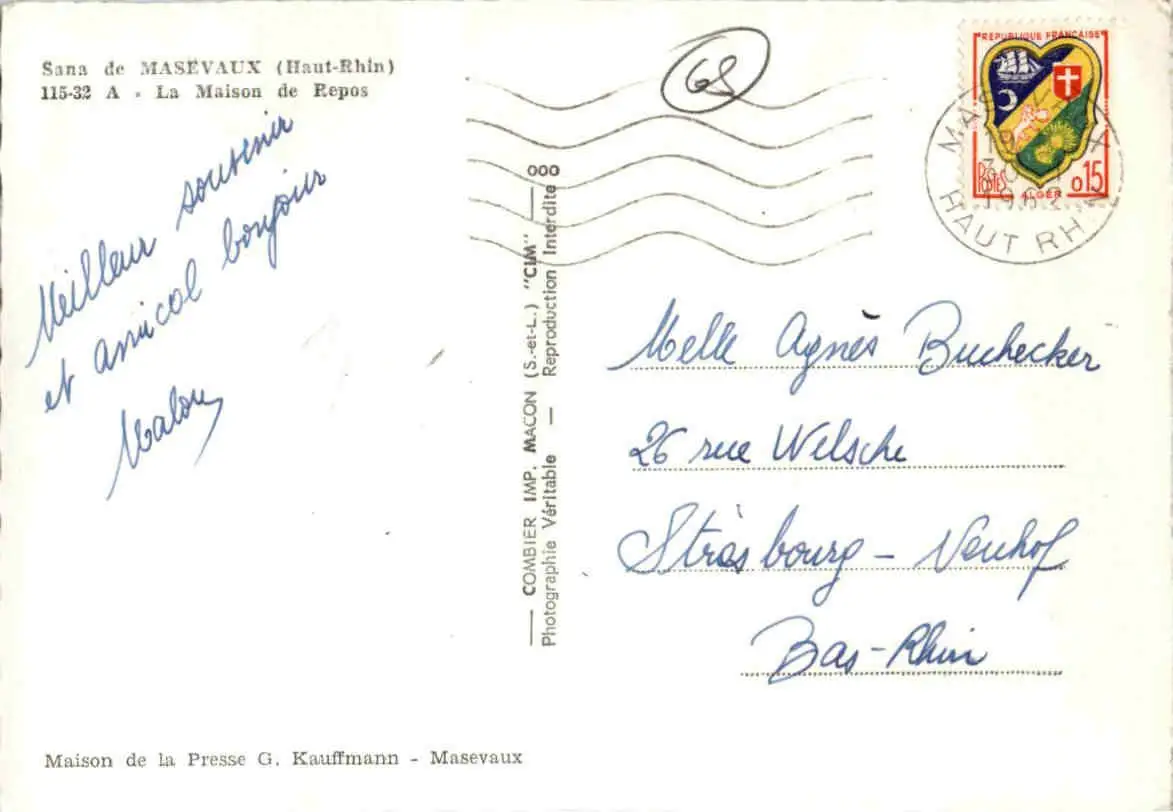 Sana de MASEVAUX (Haut-Rhin)
115-32 A - La Maison de Repos
Meilleur souvenir
et amical bonjour
Malou
68
REPUBLIQUE FRANÇAISE
POSTES 0,15
ALGER
MASEVAUX
1962
HAUT RHIN
COMBIER IMP. MACON (S.-et-L.) "CIM" — 000
Photographie Véritable — Reproduction Interdite
Melle Agnès Buchecker
26 rue Welsche
Strasbourg - Neuhof
Bas-Rhin
Maison de la Presse G. Kauffmann - Masevaux